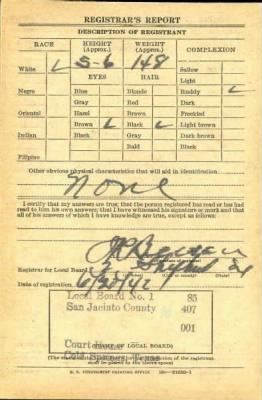 REGISTRAR'S REPORT
DESCRIPTION OF REGISTRANT
RACE HEIGHT (Approx.) WEIGHT (Approx.) COMPLEXION
White 5-6 148 Sallow
EYES HAIR Light
Negro Blue Blonde Ruddy
Gray Red Dark
Oriental Hazel Brown Freckled
Brown Black Light brown
Indian Black Gray Dark brown
Bald Black
Filipino
Other obvious physical characteristics that will aid in identification
None
I certify that my answers are true; that the person registered has read or has had
read to him his own answers; that I have witnessed his signature or mark and that
all of his answers of which I have knowledge are true, except as follows:
Registrar for Local Board
(Number) (City or county) (State)
Date of registration
Local Board No. 1 85
San Jacinto County 407
001
Court House
Cold Springs, Texas
(STAMP OF LOCAL BOARD)
of the registrant
shall be in the above space.)
U. S. GOVERNMENT PRINTING OFFICE